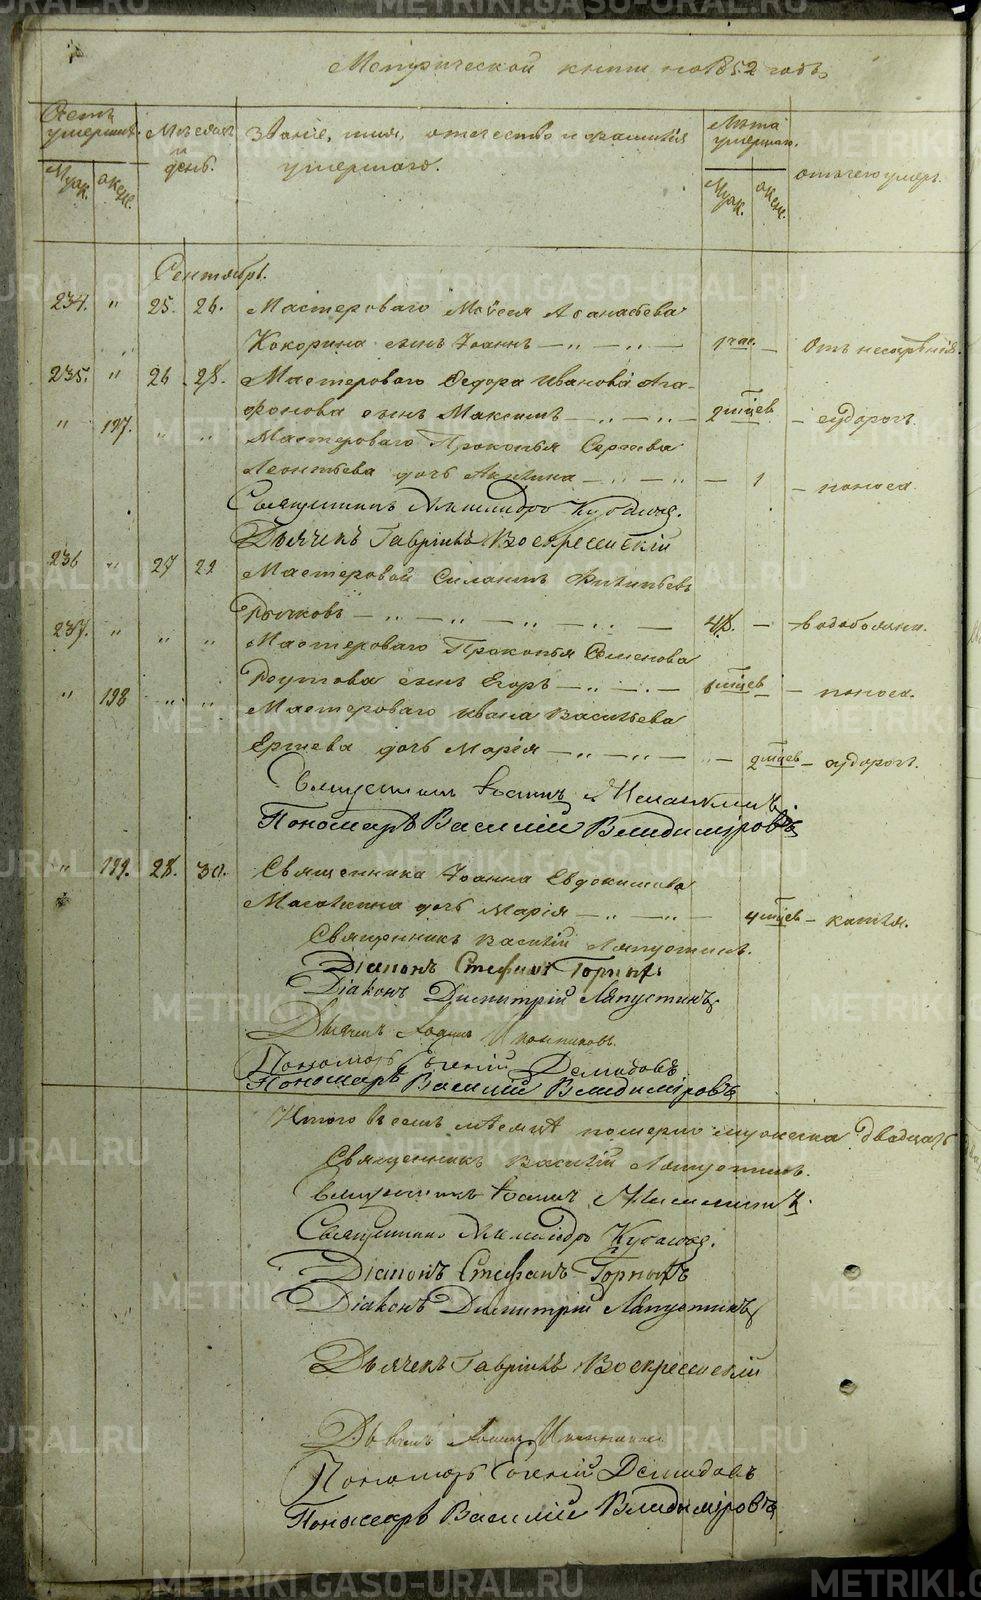 Метрической книги на 1852 годъ
Счетъ умершихъ. Мѣсяцъ и день. Званіе, имя, отечество и фамилія умершаго. Лѣта умершаго. отъ чего умеръ.
Муж. Жен. Муж. Жен.
Сентябрь.
234. " 25. 26. Мастероваго Моѵсея Аѳанасьева
Кокорина сынъ Іоаннъ — " — " — 1 час. — Отъ несозрѣнія.
235. " 26 28. Мастероваго Ѳедора Иванова Ага-
фонова сынъ Максимъ — " — " — 2 мѣсцев — судорогъ.
" 197. " " Мастероваго Прокопья Сергѣева
Леонтьева дочь Акилина — " — " — 1 — поноса.
Священникъ Александръ
Дьячекъ Гавріилъ Воскресенскій
236 " 27 29 Мастеровой Силантій Филипьевъ
Рычковъ — " — " — " — " — 48. — водобоязни.
237. " " " Мастероваго Прокопья Семенова
сынъ Егоръ — " — " — мѣсцев — поноса.
" 198 " " Мастероваго Ивана Васильева
Ершева дочь Марія — " — " — " — 2 мѣсцев — судорогъ.
Священникъ Іоаннъ
Пономарь Василій Владиміровъ
" 199. 28. 30. Священника Іоанна Евдокимова
дочь Марія — " — " — 4 мѣсцев — кашля.
Священникъ Василій Ляпустинъ.
Діаконъ Стефанъ Горныхъ
Діаконъ Димитрій Ляпустинъ
Дьячекъ
Пономарь Евгеній Демидовъ
Пономарь Василій Владиміровъ
Итого въ семъ мѣсяцѣ померло мужеска двадцать
Священникъ Василій Ляпустинъ.
Священникъ Іоаннъ
Священникъ Александръ
Діаконъ Стефанъ Горныхъ
Діаконъ Димитрій Ляпустинъ
Дьячекъ Гавріилъ Воскресенскій
Дьячекъ
Пономарь Евгеній Демидовъ
Пономарь Василій Владиміровъ
METRIKI.GASO-URAL.RU